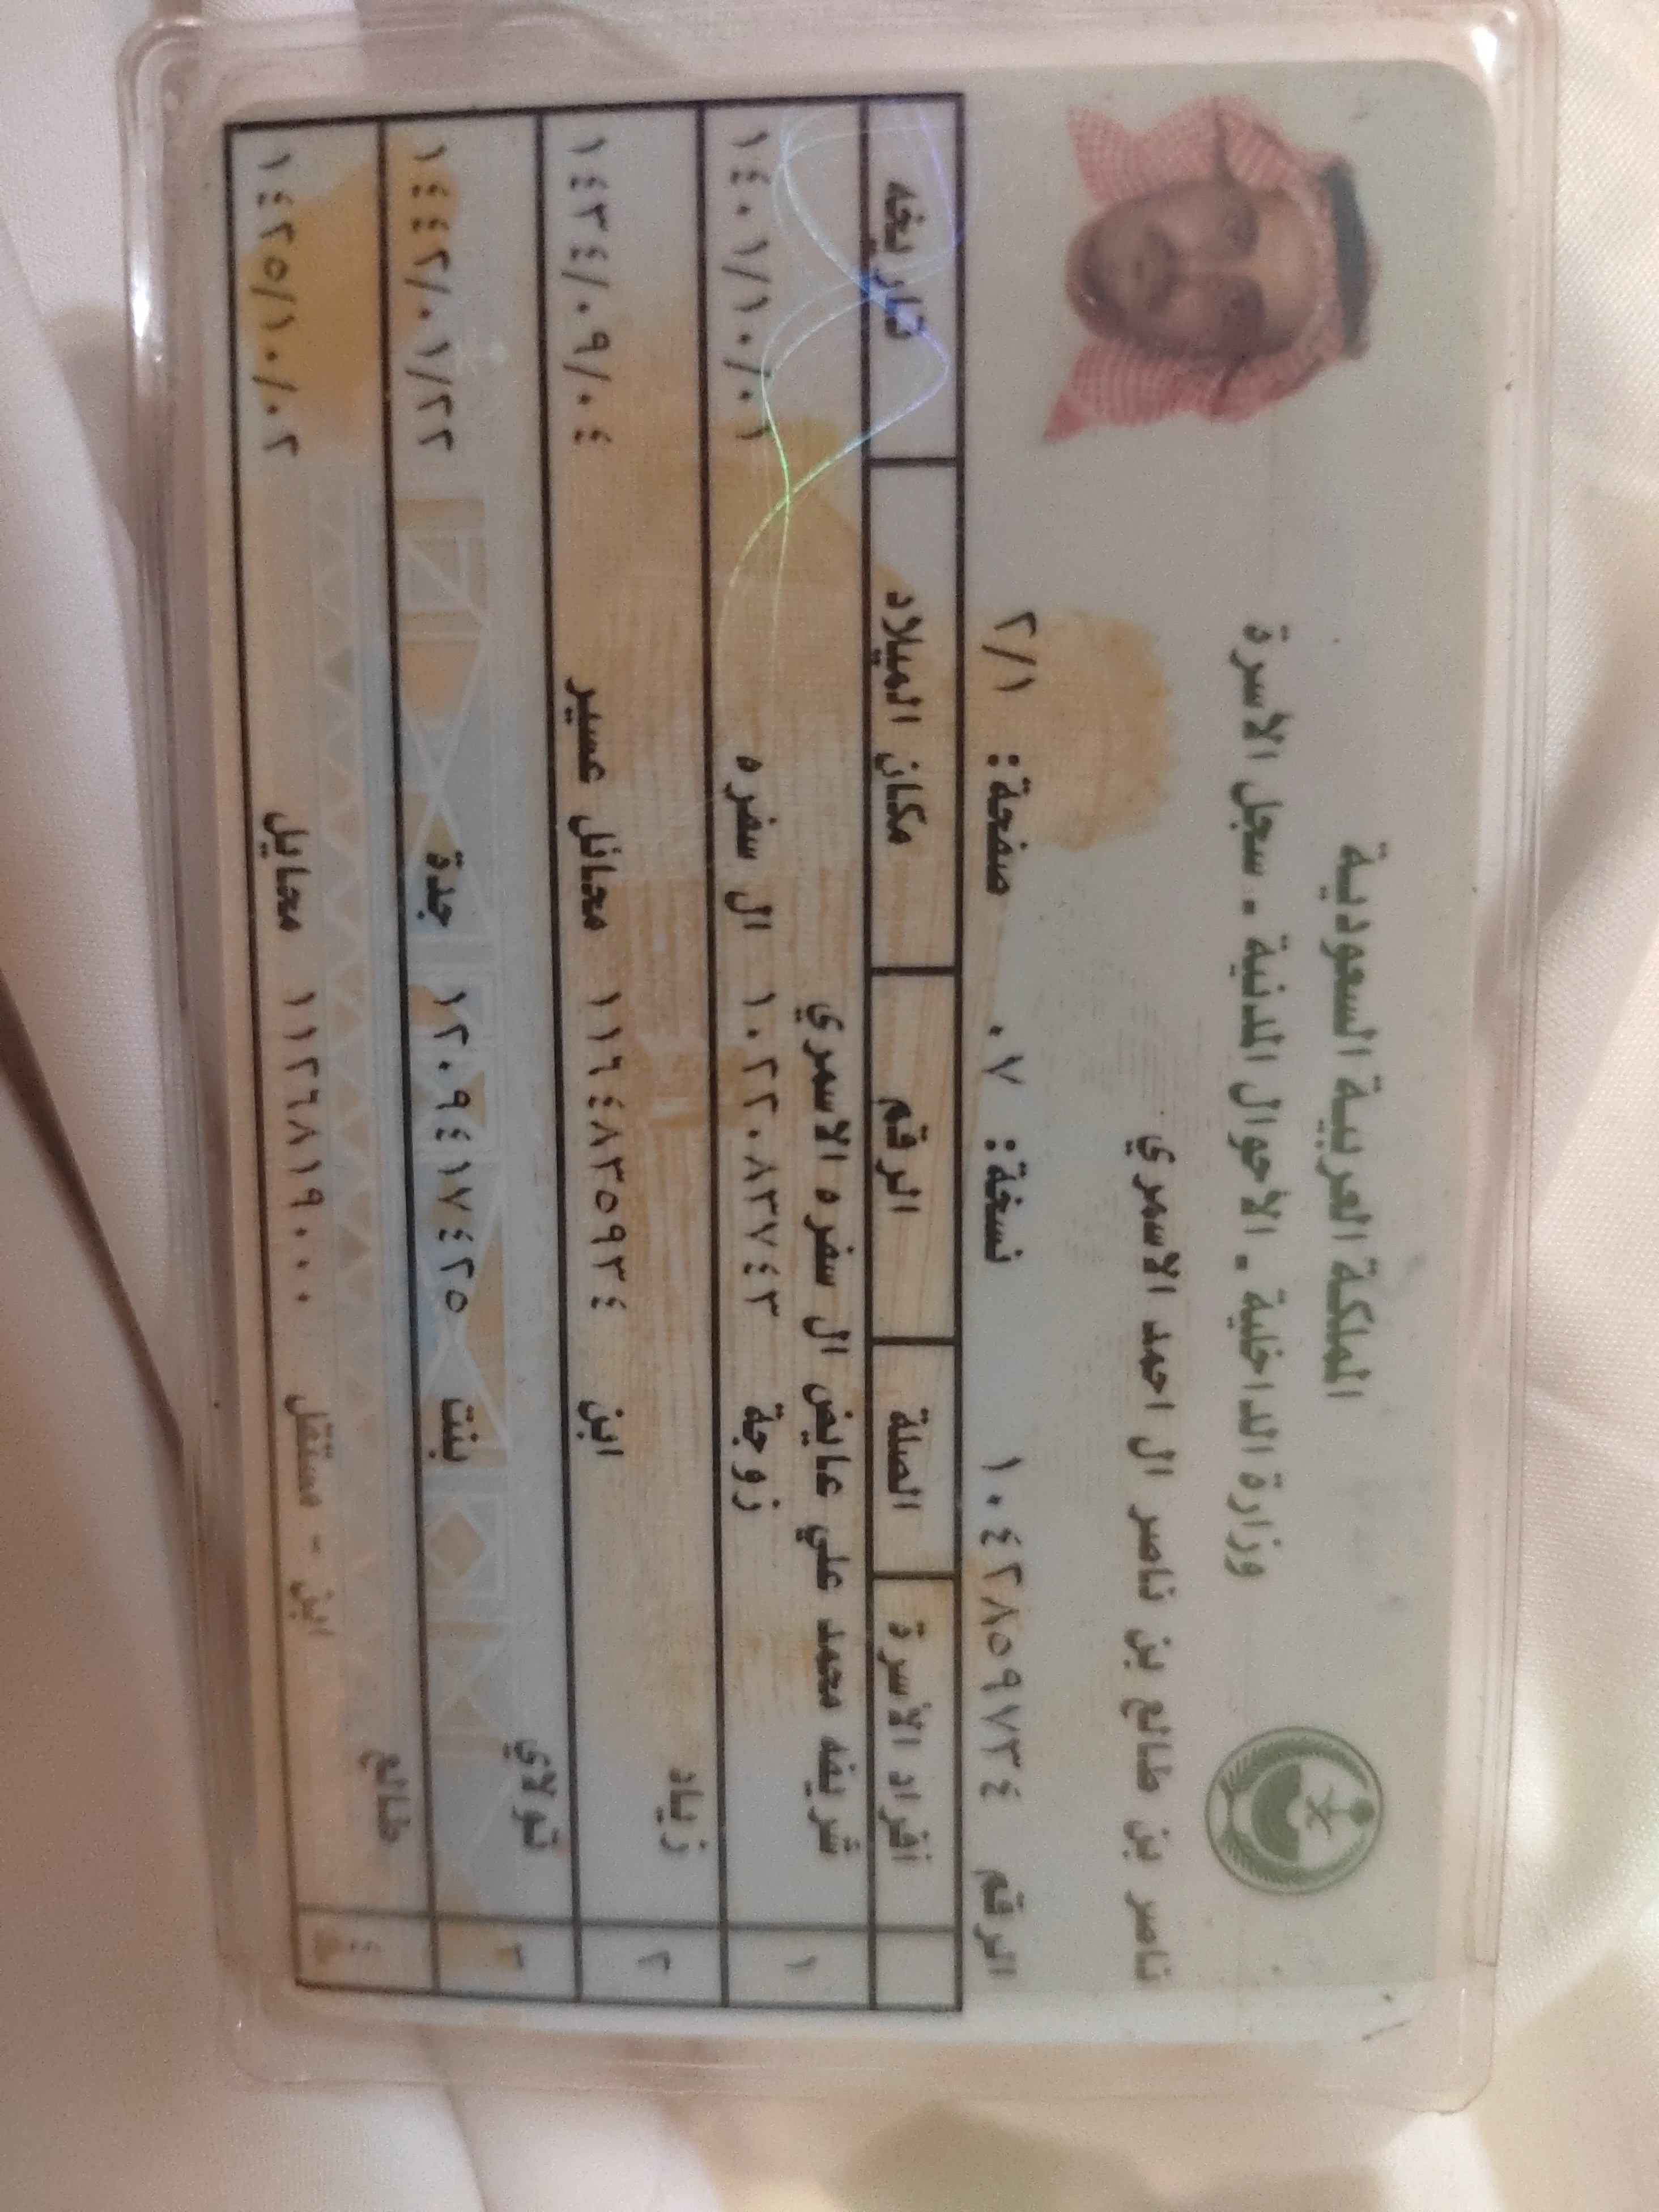 المملكة العربية السعودية
وزارة الداخلية - الأحوال المدنية - سجل الأسرة
ناصر بن طالع بن ناصر ال احمد الاسمري
الرقم ١٠٤٢٨٥٩٧٣٤ نسخة: ٠٧ صفحة: ٢/١
أفراد الأسرة الصلة الرقم مكان الميلاد تاريخه
١ شريفه محمد علي عايض ال سفره الاسمري
زوجة ١٠٢٢٠٨٣٧٤٣ ال سفره ١٤٠١/١٠/٠١
٢ زياد
ابن ١١٦٤٨٣٥٩٣٤ محائل عسير ١٤٣٤/٠٩/٠٤
٣ تولاي
بنت ١٢٠٩٤١٧٤٢٥ جدة ١٤٤٢/٠١/٢٢
٤ طالع
ابن - مستقل ١١٢٦٨١٩٠٠٠ محايل ١٤٢٥/١٠/٠٢